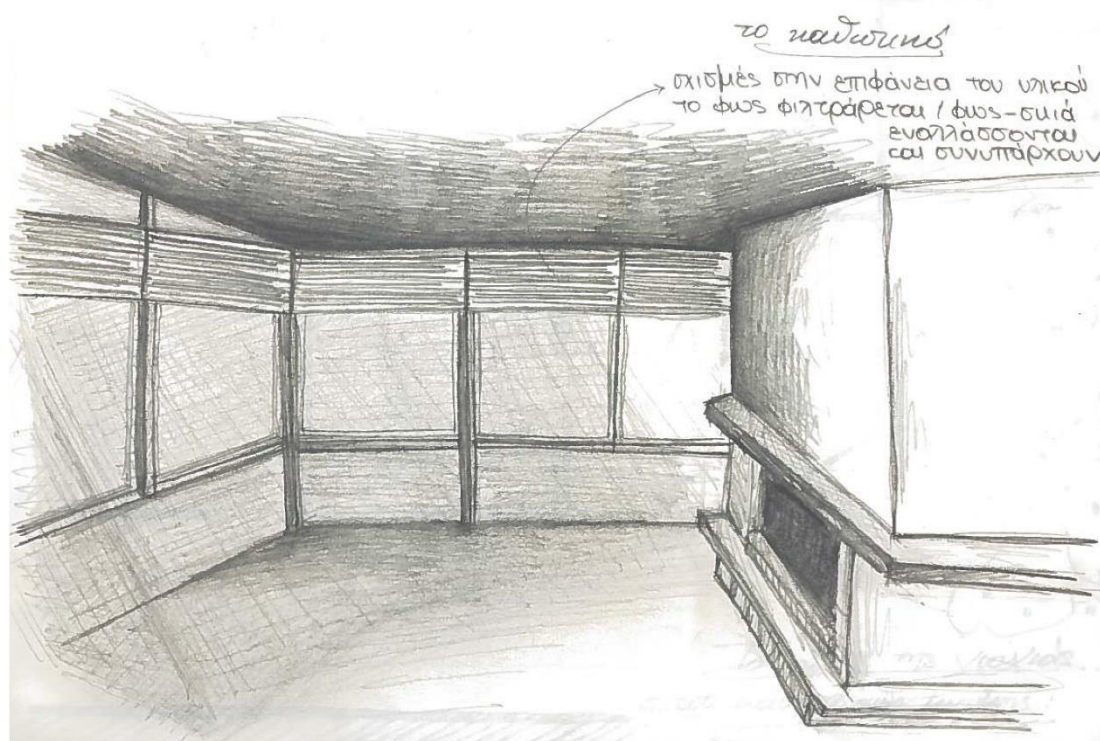 το καθιστικό
σχισμές στην επιφάνεια του υλικού
το φως φιλτράρεται / φως-σκιά
εναλλάσσονται
και συνυπάρχουν
της